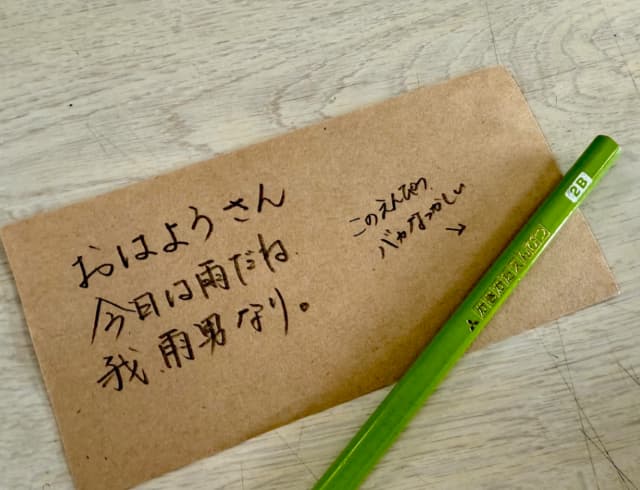 おはようさん
今日は雨だね
我、雨男なり。
このえんぴつ、
バカなつかしい
↓
2B
かきかたえんぴつ